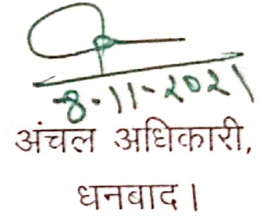 8-11-2021
अंचल अधिकारी,
धनबाद।